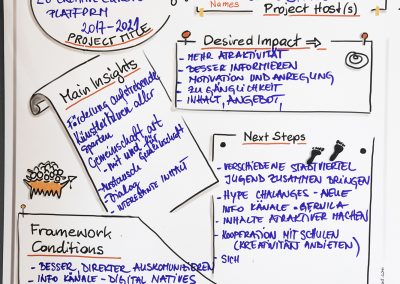 PLATFORM
2017-2021
PROJECT TITLE
Names
Project Host(s)
Desired Impact ⇒
- MEHR ATRAKTIVITÄT
- BESSER INFORMIEREN
- MOTIVATION UND ANREGUNG
- ZUGÄNGLICHKEIT
- INHALT, ANGEBOT,
Main Insights
Förderung aufstrebender
Künstler*innen aller
Sparten
Gemeinschaft art
- mit und für
Gemeinschaft
- Austausch
- Dialog
- INTERESSANTE INHALT
Next Steps
- VERSCHIEDENE STADTVIERTEL
JUGEND ZUSAMMEN BRINGEN
- HYPE CHALANGES - NELE
- INFO KANÄLE -
- INHALTE ATRAKTIVER MACHEN
- KOOPERATION MIT SCHULEN
(KREATIVITÄT ANBIETEN)
- SICH
Framework
Conditions
- BESSER, DIREKTER AUSKOMUNIZIEREN
- INFO KANÄLE - DIGITAL NATIVES